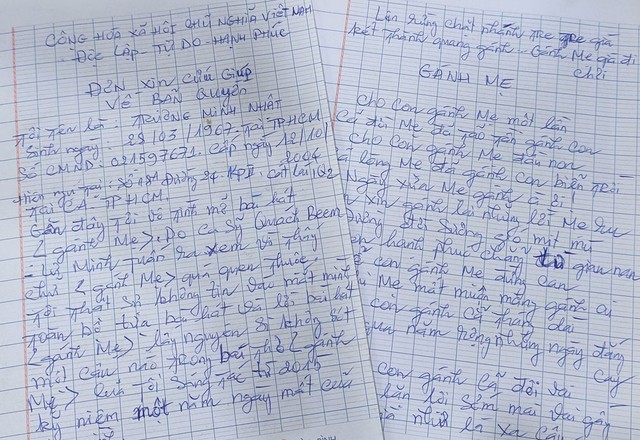 CÔNG HÒA XÃ HỘI CHỦ NGHĨA VIỆT NAM
Độc LẬP - TỰ DO - HẠNH PHÚC
ĐƠN XIN CỨU GIÚP
VỀ BẢN QUYỀN
Tôi Tên là: TRƯƠNG MINH NHẬT
Sinh ngày: 28/03/1967. Tại TPHCM
Số CMND: 021597671. cấp ngày 12/10/
2004
Tại CA - TPHCM.
Hiện ngụ tại: Số 181 Đường 24 KPII. cát lái, Q2
Gần đây Tôi vô tình mở bài hát
< gánh Mẹ >. Do ca sỹ Quách Beem
- và Minh Tuấn ra xem và thấy
chữ < gánh Mẹ > quá quen thuộc.
Tôi Thật sự không tin vào mắt mình
Toàn bộ tựa bài hát và lời bài hát
< gánh Mẹ > lấy nguyên si không sót
một câu nào trong bài thơ < gánh
Mẹ > của tôi Sáng Tác từ 2015
kỷ niệm một năm ngày mất của
kết thành quang gánh - Gánh Mẹ già đi
chơi
GÁNH MẸ
Cho con gánh Mẹ một lần
Cả đời Mẹ đã tảo tần gánh con
Cho con gánh Mẹ đầu non
lòng Mẹ đã gánh con biển trời
Ngày xưa Mẹ gánh à ơi
xin gánh lại những lời Mẹ ru
Đường đời sương gió mịt mù
hạnh phúc chẳng từ gian nan
con gánh Mẹ đừng can
Mẹ mất muốn mang gánh ai
con gánh cả tháng dài
năm rộng những ngày đắng cay
con gánh cả đôi vai
lặn lội sớm mai vai gầy